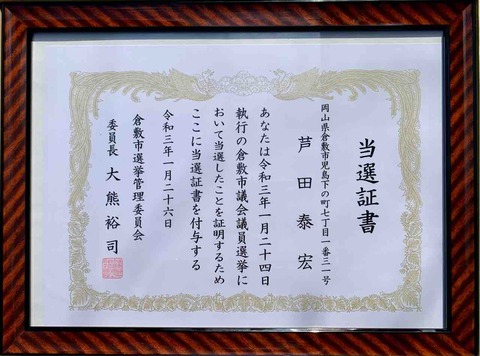 当選証書
岡山県倉敷市児島下の町七丁目一番三一号
芦田泰宏
あなたは令和三年一月二十四日
執行の倉敷市議会議員選挙に
おいて当選したことを証明するため
ここに当選証書を付与する
令和三年一月二十六日
倉敷市選挙管理委員会
委員長 大熊裕司